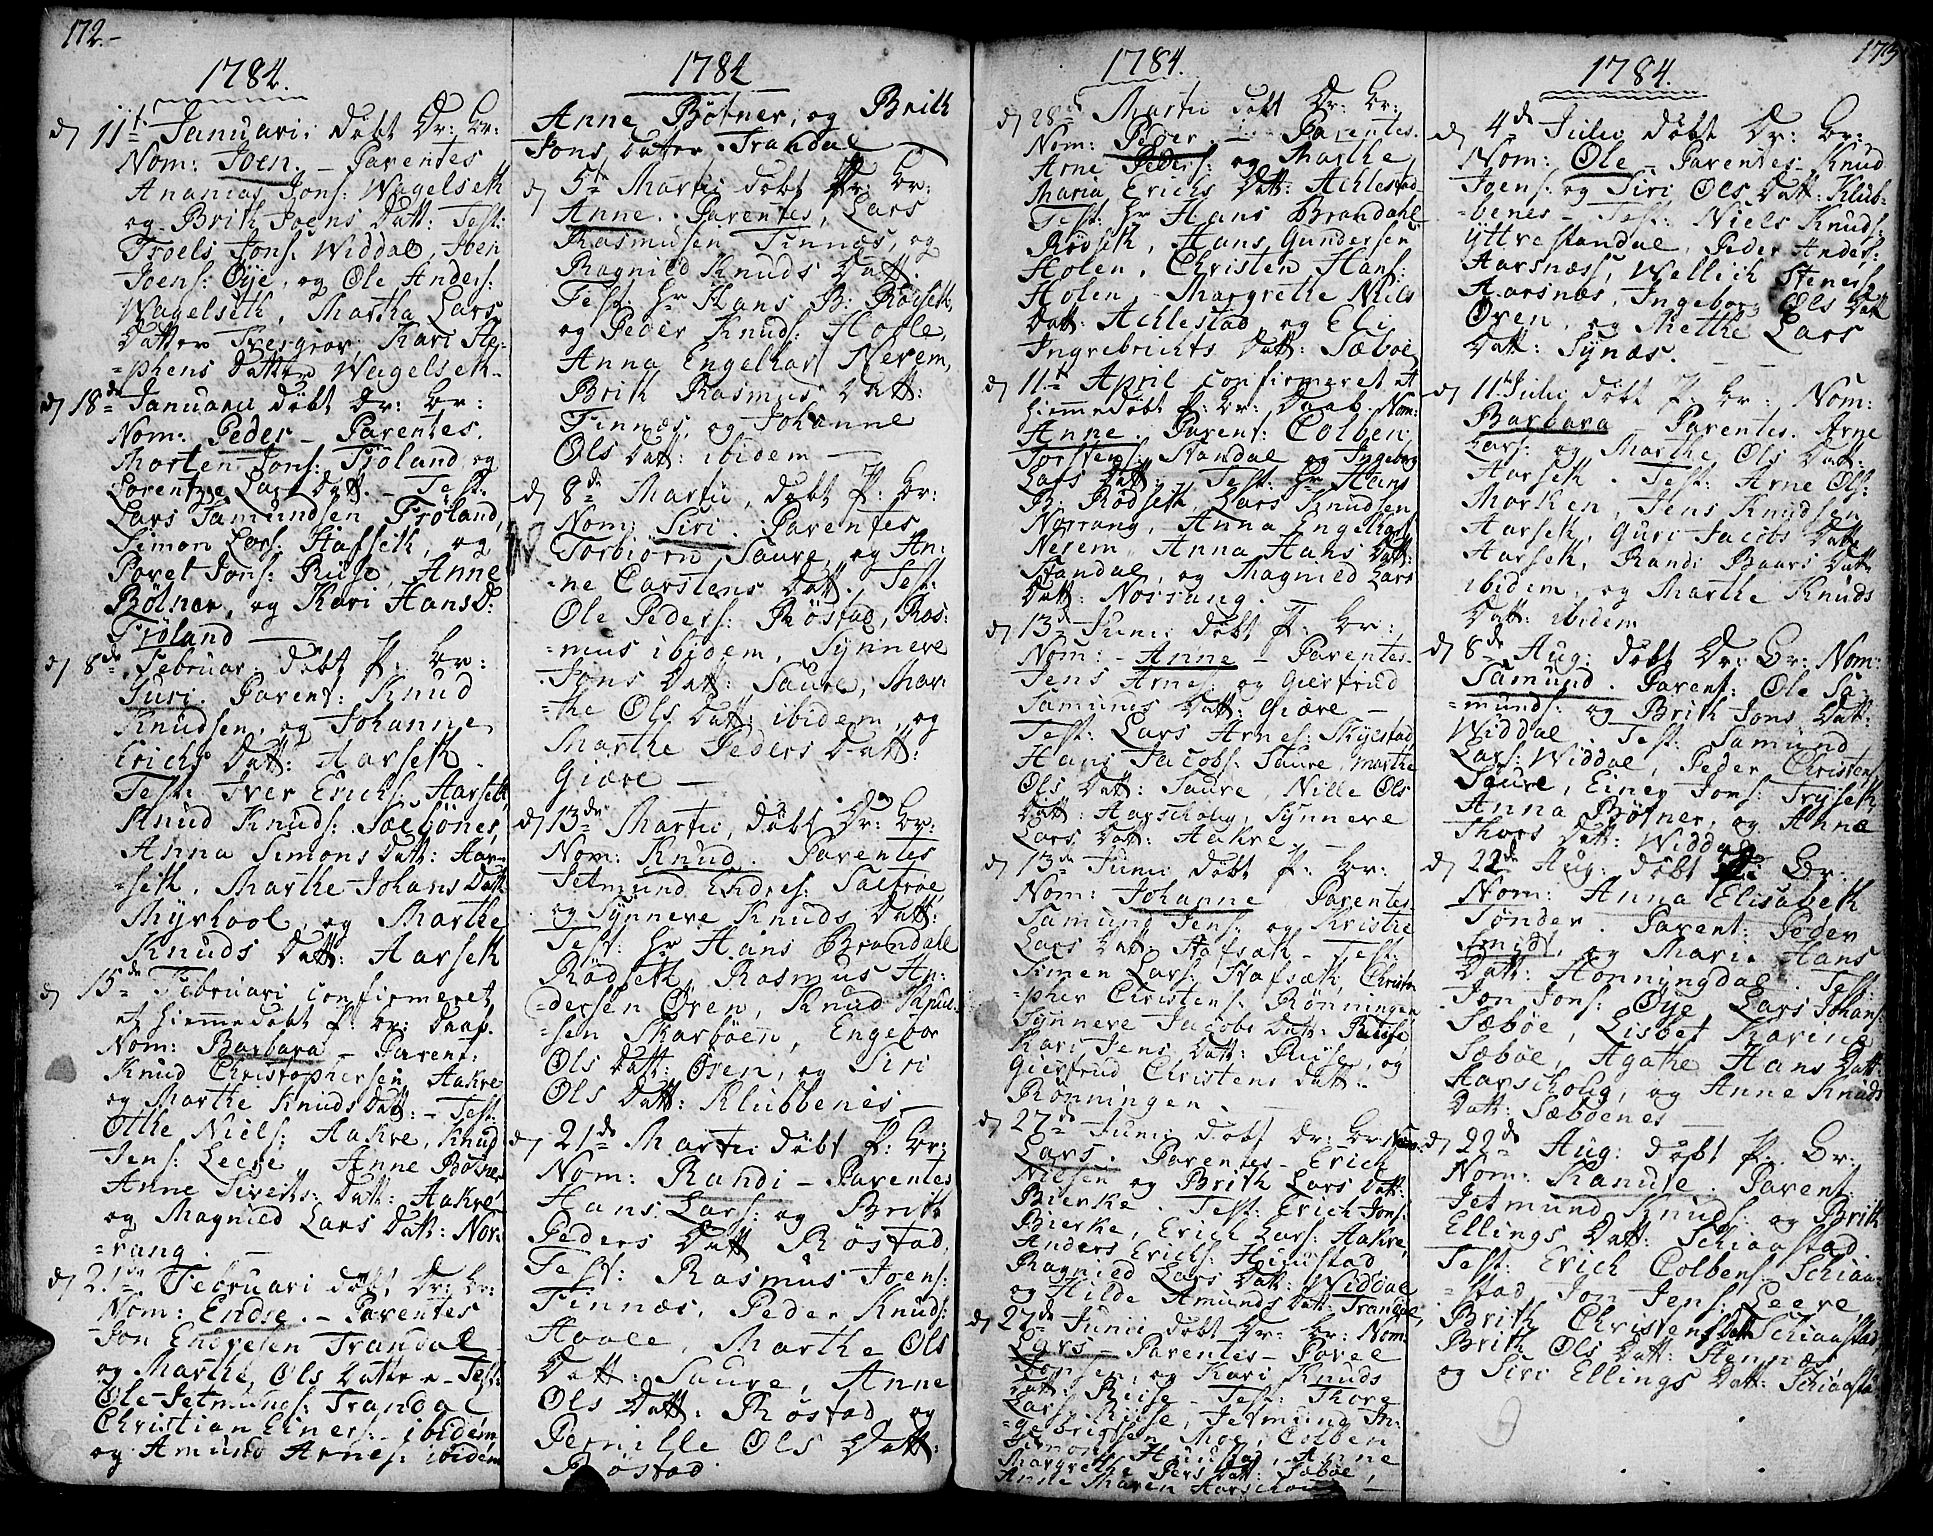 172.-
1784.
d 11te Januari: döbt Dr: Br:
Nom: Joen. - Parentes
Ananias Jons: Wagelseth
og Brith Joens Datt: Test:
Troels Jons: Widdal, Joen
Joens: Øye, og Ole Anders:
Wagelseth, Martha Lars
Datter Tresgrov, Kari Ste-
=phens Datter Wagelseth.
d 18de Januarii döbt Dr: Br:
Nom: Peder - Parentes.
Morten Jons: Fröland og
Lorentze Lars Datt. - Test:
Lars Samundsen Fröland,
Simon Lars: Hafseth, og
Povel Jons: Riise, Anne
Bötner, og Kari Hans D:
Fröland
d 8de Februar: döbt P: Br:
Guri. Parent: Knud
Knudsen, og Johanne
Erichs Datt: Aarseth.
Test: Iver Erichs: Aarseth,
Knud Knuds: Sæbönes,
Anna Simons Datt: Aar-
=seth, Marthe Johans Datt
Myrhool, og Marthe
Knuds Datt: Aarseth
d 15de Februari confirmeret
et hiemmedöbt P: Br: Daab.
Nom: Barbara - Parent:
Knud Christophersen Aakre
og Marthe Knuds Datt: - Test:
Othe Niels: Aakre, Knud
Jens: Leere, Anne Bötner
Anne Siverts: Datt: Aakre
og Magnild Lars Datt: Nor-
=rang. -
d 21de Februari döbt Dr: Br:
Nom: Endre. - Parentes
Jon Endresen Trandal
og Marthe Ols Datter - Test:
Ole Jetmunds: Trandal
Christian Einers: ibidem
og Amund Arnes: ibidem
1784
Anne Bötner, og Brith
Jons Datter Trandal
d 5te Martii döbt Dr: Br:
Anne. Parentes, Lars
Rasmusen Finnæs, og
Ragnild Knuds Datt.
Test: Hr Hans B: Rödseth,
og Peder Knuds: Hofle,
Anna Engelhart Nerem,
Brith Rasmus Datt:
Finnæs, og Johanne
Ols Datt: ibidem
d 8de Martii, döbt P: Br:
Nom: Siri. Parentes
Torbiörn Saure og An-
=ne Carstens Datt. Test:
Ole Peders: Röstad, Ras-
=mus ibidem, Synneve
Jons Datt: Saure, Mar-
=the Ols Datt: ibidem, og
Marthe Peders Datt:
Giære -
d 13de Martii, döbt Dr: Br:
Nom: Knud. Parentes
Jetmund Endres: Sætröe
og Synneve Knuds Datt:
Test: Hr Hans Brandahl
Rödseth, Rasmus An-
=dersen Ören, Knud Knud-
=sen Skarböen, Engebor
Ols Datt: Ören, og Siri
Ols Datt: Klubbenes -
d 21de Martii döbt P: Br:
Nom: Randi - Parentes
Hans Lars: og Brith
Peders Datt Röstad.
Test: Rasmus Joens:
Finnæs, Peder Knuds:
Haale, Marthe Ols
Datt: Saure, Anne
Ols Datt: Röstad og
Pernille Ols Datt:
Röstad
1784.
d 28de Martii döbt Dr: Br:
Nom: Peder - Parentes.
Arne Peders: og Marthe
Maria Erichs Datt: Achlestad
Test: Hr Hans Brandahl
Rödseth, Hans Gundersen
Holen, Christen Hans:
Holen, Margrethe Niels
Datt: Achlestad, og Eli
Ingrebrichts Datt: Sæboe
d 11te April confirmeret et
hiemmedöbt P: Br: Daab. Nom:
Anne Parent: Colben
Torstens: Standal og Ingeborg
Lars Datt: Test: Hr Hans
B: Rödseth, Lars Knudsen
Norrang, Anna Engelhart
Nerem, Anna Hans Datt:
Standal, og Magnild Lars
Datt: Norrang.
d 13de Junii döbt P: Br:
Nom: Anne - Parentes.
Jens Arnes: og Giertrud
Samunds Datt: Giære -
Test: Lars Arnes: Skyestad
Hans Jacobs: Saure, Marthe
Ols Datt: Saure, Nille Ols
Datt: Aarscholig, Synneve
Lars Datt: Aakre.
d 13de Junii döbt P: Br:
Nom: Johanne Parentes
Samund Jens: og Kristie
Lars Datt: Hafsæth - Test:
Simen Lars: Hafsæth, Christo
=pher Christens: Rönningen
Synneve Jacobs Datt: Riise
Kari Jens Datt: Riise, og
Giertrud Christens Datt:
Rönningen
d 27de Junii döbt Dr: Br: Nom:
Lars. Parentes - Erich
Nielsen og Brith Lars Datt:
Bierke. Test: Erich Jons:
Bierke, Erich Lars: Aakre,
Anders Erichs: Hunstad
Ragnild Lars Datt: Widdal
og Hilde Amunds Datt: Trandal
d 27de Junii döbt Dr: Br: Nom:
Lars - Parentes - Povel
Jonsen og Kari Knuds
Datt: Riise - Test: Thore
Lars: Riise, Jetmund In-
=gebrigtsen Moe, Colben
Simons: Hunstad, Anne
Margrethe Pers Datt: Sæböe,
Anne Maren Aarscholig -
173
1784.
d 4de Julii döbt Dr: Br:
Nom: Ole - Parentes - Knud
Joens: og Siri Ols Datt: Klub-
=benes - Test: Niels Knuds:
Yttrestandal, Peder Anders:
Aarsnæs, Wellich Steners:
Aarsnæs, Ingebor Ols Datt
Ören, og Methe Lars
Datt: Synæs.
d 11te Julii döbt P: Br: Nom:
Barbara - Parentes. Arne
Lars: og Marthe Ols Datt:
Aarseth. Test: Arne Ols:
Morken, Jens Knudsen
Aarseth, Guri Jacobs Datt:
Aarseth, Randi Baars Datt:
ibidem, og Marthe Knuds
Datt: ibidem
d 8de Aug: döbt Dr: Br: Nom:
Samund. Parent: Ole Sa-
=munds: og Brith Jons Datt:
Widdal. Test: Samund
Lars: Widdal, Peder Christens:
Saure, Einer Jons: Tryseth,
Anna Bötner, og Anne
Thors Datt: Widdal
d 22de Aug: döbt Br:
Nom: Anna Elisabeth
Tönder. Parent: Peder
Smidt, og Mari Hans
Datt: Honningdal. Test:
Jon Jons: Øye, Lars Johans:
Sæböe, Lisbet Karine
Sæböe, Agathe Hans Datt:
Aarscholig, og Anne Knuds
Datt: Sæböenes -
d 22de Aug: döbt P: Br:
Nom: Kanute. Parent:
Jetmund Knuds: og Brith
Ellings Datt: Schiaastad.
Test: Erich Colbens: Schiaa-
=stad, Jon Jens: Leere
Brith Christens Datt: Schiaastad,
Brith Ols Datt: Stennæs
og Siri Ellings Datt: Schiaastad